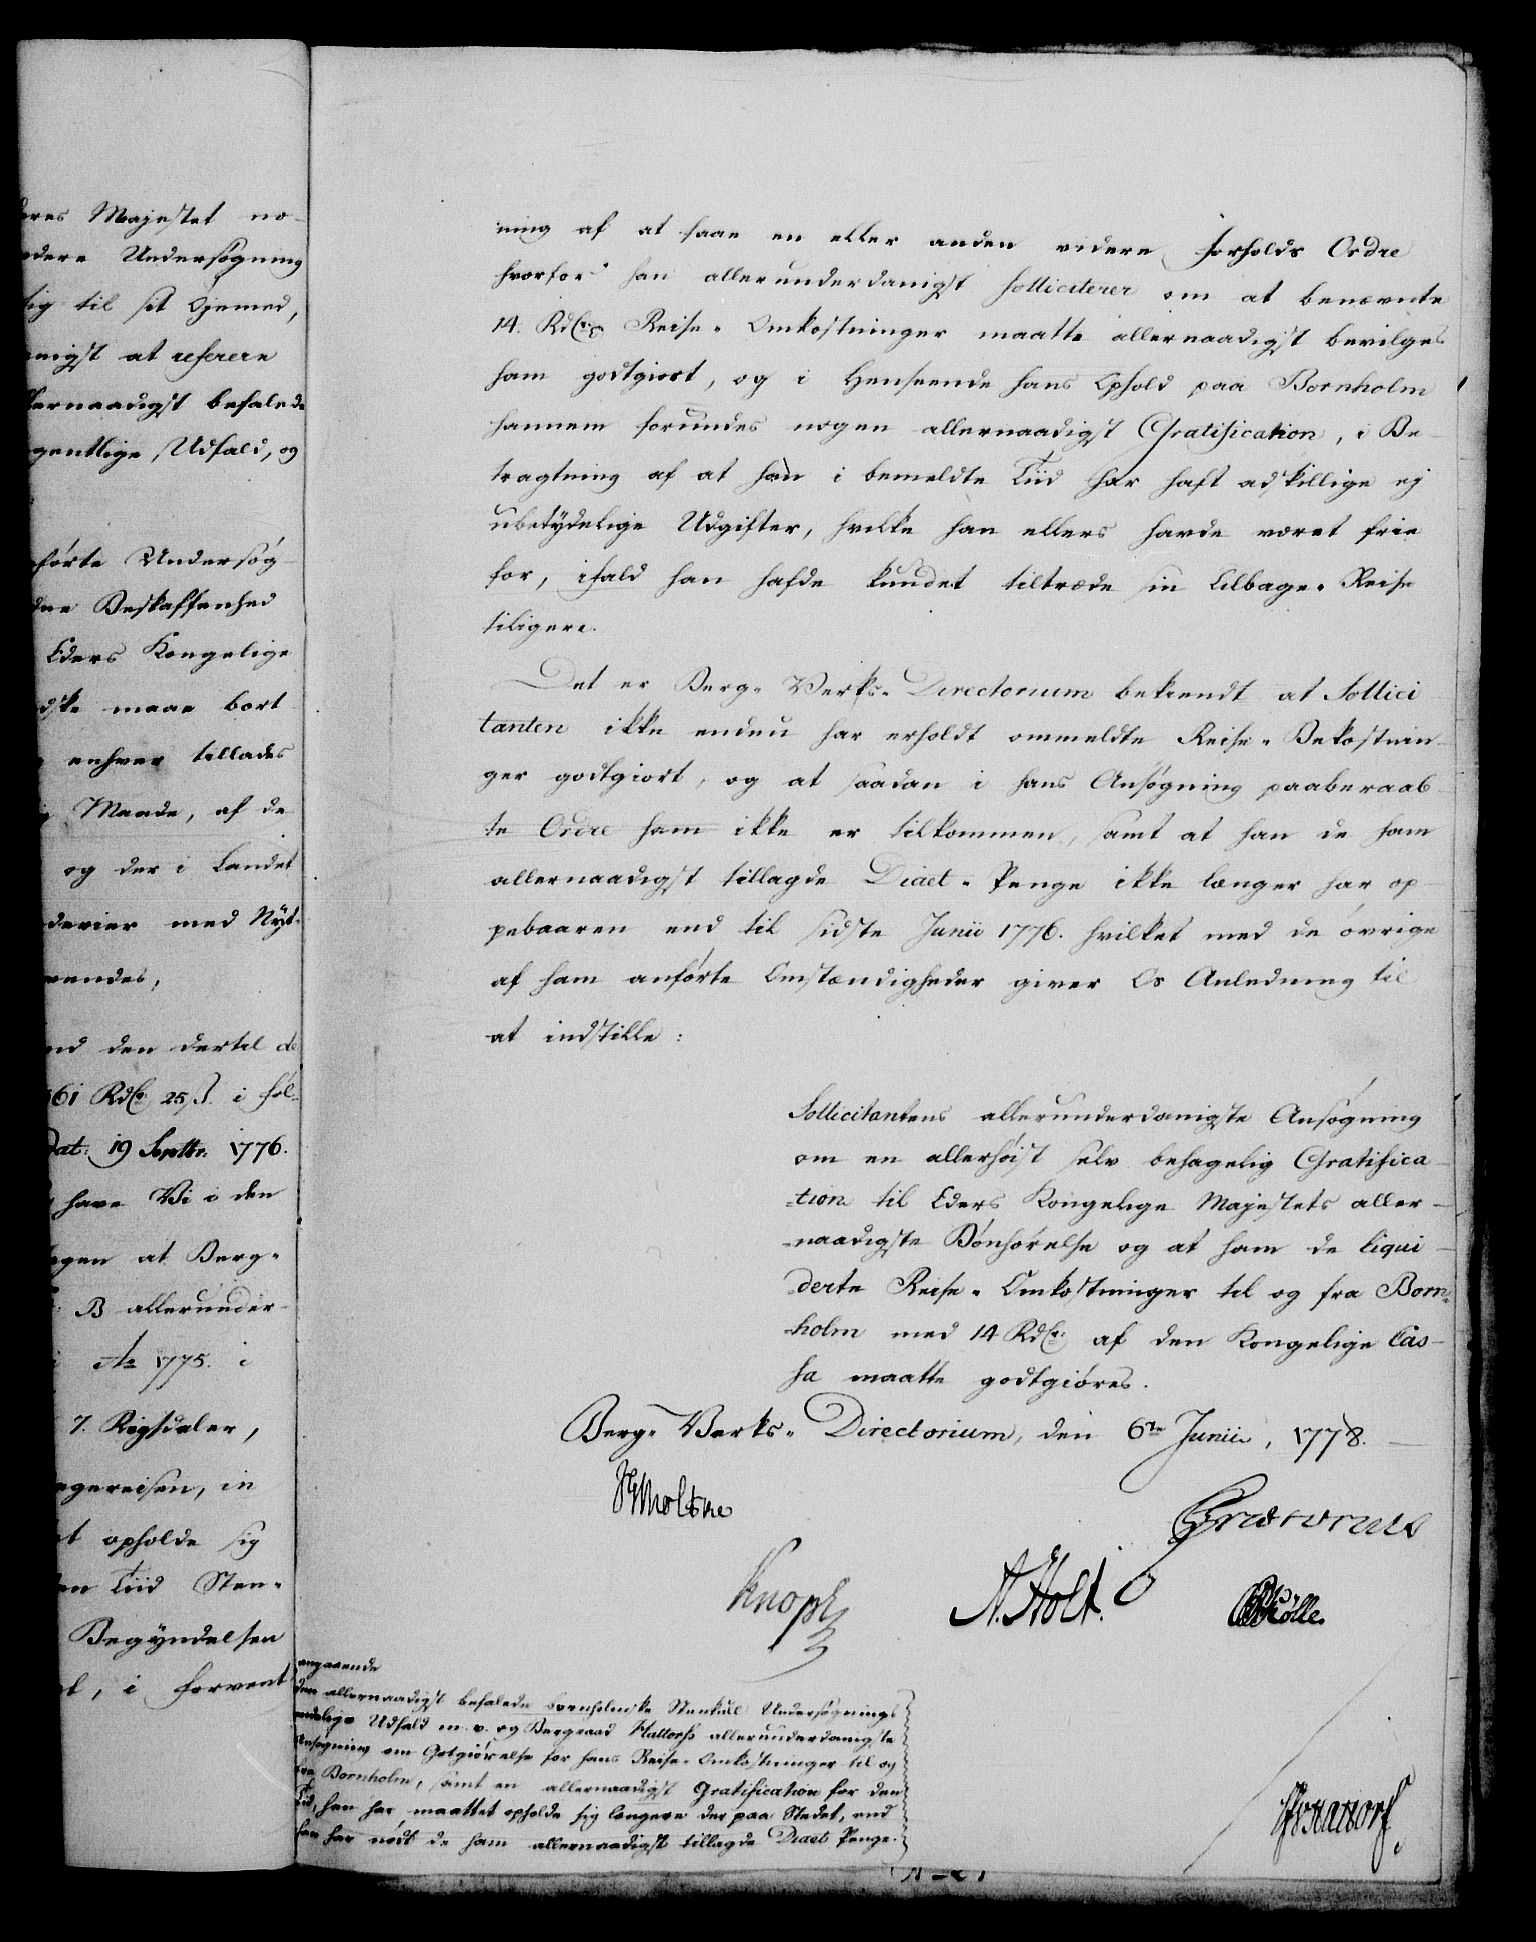 eres Majestet no-
dere Undersøgning
tig til sit Øjemed,
nigst at referere
lernaadigst befalede
gentlige Udfald, og
førte Undersøg-
dne Beskaffenhed
Eders Kongelige
dske maae bort
enhver tillades
Maade, af de
og der i Landet
derier med Nÿt-
vendes,
nd den dertil de
61 Rdlr. 25 s. i fol-
Dat: 19 Septbr. 1776.
have Vi i den
gen at Berg-
B allerunder-
Ao 1775. i
7. Rigsdaler,
gereisen, in
t opholde sig
en Tiid Sten-
Begÿndelsen
t, i forvent
ning af at faae en eller anden videre forholds Ordre
hvorfor han allerunderdanigst solliciterer om at benævnte
14. Rdlr. Reise-Omkostninger maatte allernaadigst bevilges
ham godtgiort, og i Henseende hans Ophold paa Bornholm
hannem forundes nogen allernaadigst Gratification, i Be-
tragtning af at han i bemeldte Tiid har haft adskillige ej
ubetÿdelige Udgifter, hvilke han ellers havde været frie
for, ifald han hafde kundet tiltræde sin Tilbage-Reise
tiligere.
Det er Berg-Verks-Directorium bekiendt at Sollici
tanten ikke endnu har erholdt ommeldte Reise-Bekostnin-
ger godtgiort, og at saadan i hans Ansøgning paaberaab-
te Ordre ham ikke er tilkommen, samt at han de ham
allernaadigst tillagde Diaet-Penge ikke længer har op-
pebaaren end til sidste Junii 1776. hvilket med de øvrige
af ham anførte Omstændigheder giver Os Anledning til
at indstille:
Sollicitantens allerunderdanigste Ansøgning
om en allerhøist selv behagelig Gratifica-
-tion til Eders Kongelige Majestets aller-
-naadigste Bønhørelse og at ham de liqui-
-derte Reise-Omkostninger til og fra Born-
-holm med 14 Rdlr. af den Kongelige Cas-
sa maatte godtgiøres.
Berg-Verks-Directorium, den 6te Junii, 1778.
Moltke
Knoph
A. Holt.
Kølle
angaaende
den allernaadigst befalede bornholmske Steenkull Undersøgnings
endelige Udfald m. v. og Bergraad Hattorfs allerunderdanigste
Ansøgning om Gotgiørelse for hans Reise-Omkostninger til og
fra Bornholm, samt en allernaadigst Gratification for den
Tiid, han har maattet opholde sig længere der paa Stedet, end
han har nÿdt de ham allernaadigst tillagde Diaet Penge.